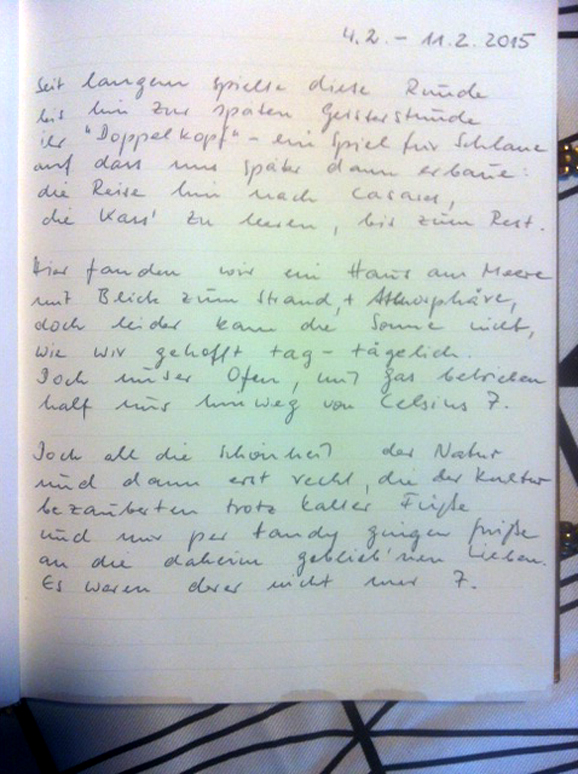 4.2. - 11.2. 2015
Seit langem spielte diese Runde
bis hin zur späten Geisterstunde
ihr "Doppelkopf" - ein Spiel für Schlaue
auf dass uns später dann erbaue:
die Reise hin nach Casares,
die Kass' zu leeren, bis zum Rest.
Hier fanden wir ein Haus am Meere
mit Blick zum Strand, + Atmosphäre,
doch leider kam die Sonne nicht,
wie wir gehofft tag-tägelich.
Doch unser Ofen, mit Gas betrieben
half uns hinweg von Celsius 7.
Doch all die Schönheit der Natur
und dann erst recht, die der Kultur
bezauberten trotz kalter Füße
und nur per Handy gingen Grüße
an die daheim geblieb'nen Lieben.
Es waren derer nicht nur 7.